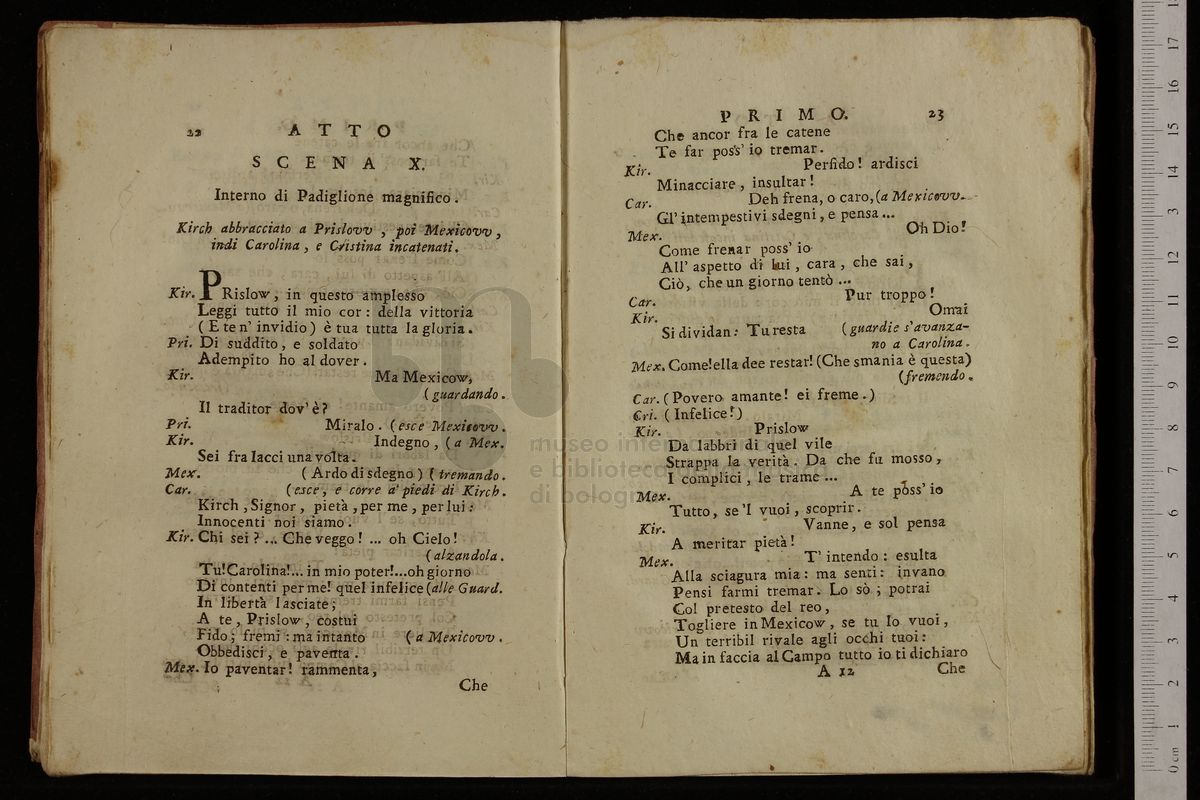 22 ATTO
SCENA X.
Interno di Padiglione magnifico.
Kirch abbracciato a Prislovv, poi Mexicovv,
indi Carolina, e Cristina incatenati.
Kir. PRislow, in questo amplesso
Leggi tutto il mio cor: della vittoria
(E ten' invidio) è tua tutta la gloria.
Pri. Di suddito, e soldato
Adempito ho al dover.
Kir. Ma Mexicow,
(guardando.
Il traditor dov'è?
Pri. Miralo. (esce Mexicovv.
Kir. Indegno, (a Mex.
Sei fra lacci una volta.
Mex. (Ardo di sdegno) (tremando.
Car. (esce, e corre a' piedi di Kirch.
Kirch, Signor, pietà, per me, per lui:
Innocenti noi siamo.
Kir. Chi sei? ... Che veggo! ... oh Cielo!
(alzandola.
Tu! Carolina!... in mio poter!... oh giorno
Di contenti per me! quel infelice (alle Guard.
In libertà lasciate;
A te, Prislow, costui
Fido; fremi: ma intanto (a Mexicovv.
Obbedisci, e paventa.
Mex. Io paventar! rammenta,
Che
PRIMO. 23
Che ancor fra le catene
Te far poss' io tremar.
Kir. Perfido! ardisci
Minacciare, insultar!
Car. Deh frena, o caro, (a Mexicovv.
Gl' intempestivi sdegni, e pensa...
Mex. Oh Dio!
Come frenar poss' io
All' aspetto di lui, cara, che sai,
Ciò, che un giorno tentò ...
Car. Pur troppo!
Kir. Omai
Si dividan: Tu resta (guardie s'avanza-
no a Carolina.
Mex. Come! ella dee restar! (Che smania è questa)
(fremendo.
Car. (Povero amante! ei freme.)
Cri. (Infelice!)
Kir. Prislow
Da labbri di quel vile
Strappa la verità. Da che fu mosso,
I complici, le trame ...
Mex. A te poss' io
Tutto, se 'l vuoi, scoprir.
Kir. Vanne, e sol pensa
A meritar pietà!
Mex. T' intendo: esulta
Alla sciagura mia: ma senti: invano
Pensi farmi tremar. Lo sò; potrai
Col pretesto del reo,
Togliere in Mexicow, se tu lo vuoi,
Un terribil rivale agli occhi tuoi:
Ma in faccia al Campo tutto io ti dichiaro
A 12 Che
museo
e biblioteca
di bologna